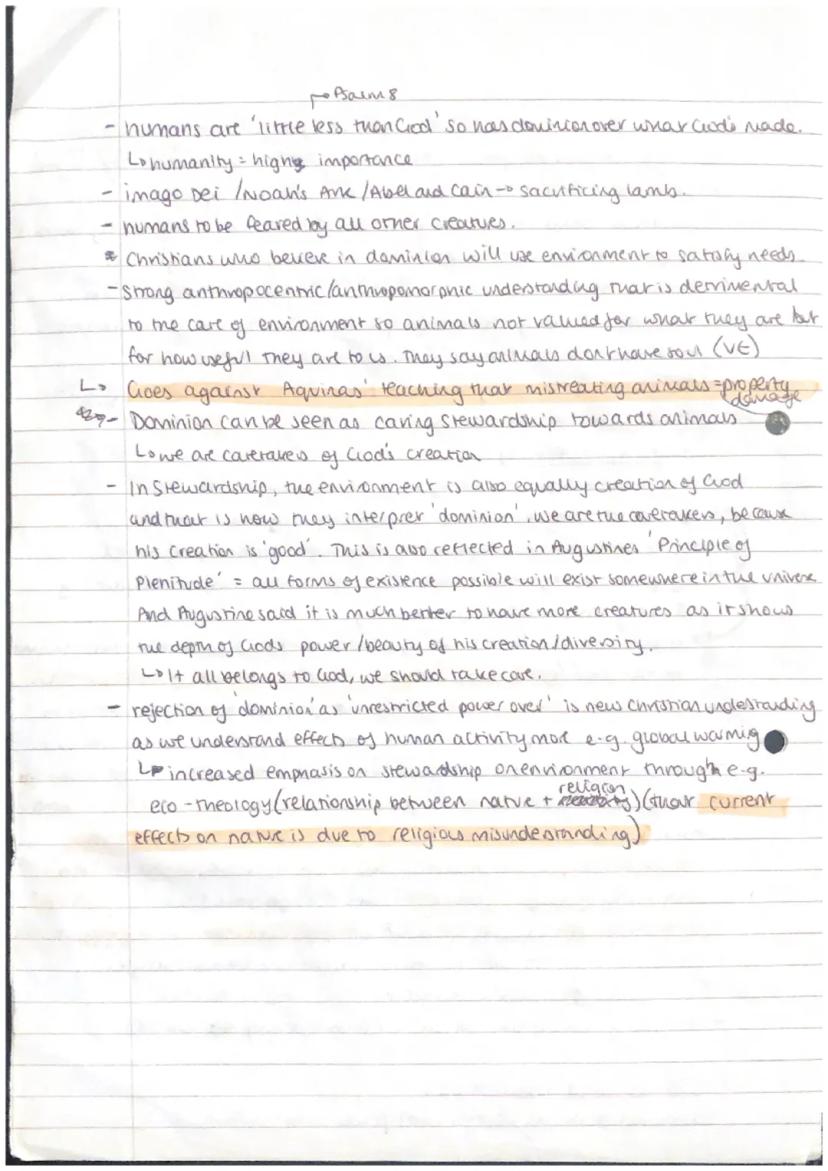 → Psalm 8
- humans are 'little less than God' so has dominion over what God's made.
↳ humanity = highly importance
- imago Dei / Noah's Ark / Abel and Cain → sacrificing lamb.
- humans to be feared by all other creatures.
* Christians who believe in dominion will use environment to satisfy needs.
- strong anthropocentric/anthropomorphic understanding that is detrimental
to the care of environment so animals not valued for what they are but
for how useful they are to us. They say animals don't have soul (VE)
↳ Goes against Aquinas' teaching that mistreating animals = property
damage
- Dominion can be seen as caring stewardship towards animals
↳ we are caretakers of God's creation
- In Stewardship, the environment is also equally creation of God
and that is how they interpret 'dominion'. we are the caretakers, because
his creation is 'good'. This is also reflected in Augustines 'Principle of
Plenitude' = all forms of existence possible will exist somewhere in the universe
And Augustine said it is much better to have more creatures as it shows
the depth of Gods power/beauty of his creation/diversity.
↳ It all belongs to God, we should take care.
- rejection of 'dominion' as 'unrestricted power over' is new Christian understanding
as we understand effects of human activity more e.g. global warming
↳ increased emphasis on stewardship on environment through e.g.
religion
eco-theology (relationship between nature + ) (that current
effects on nature is due to religious misunderstanding)